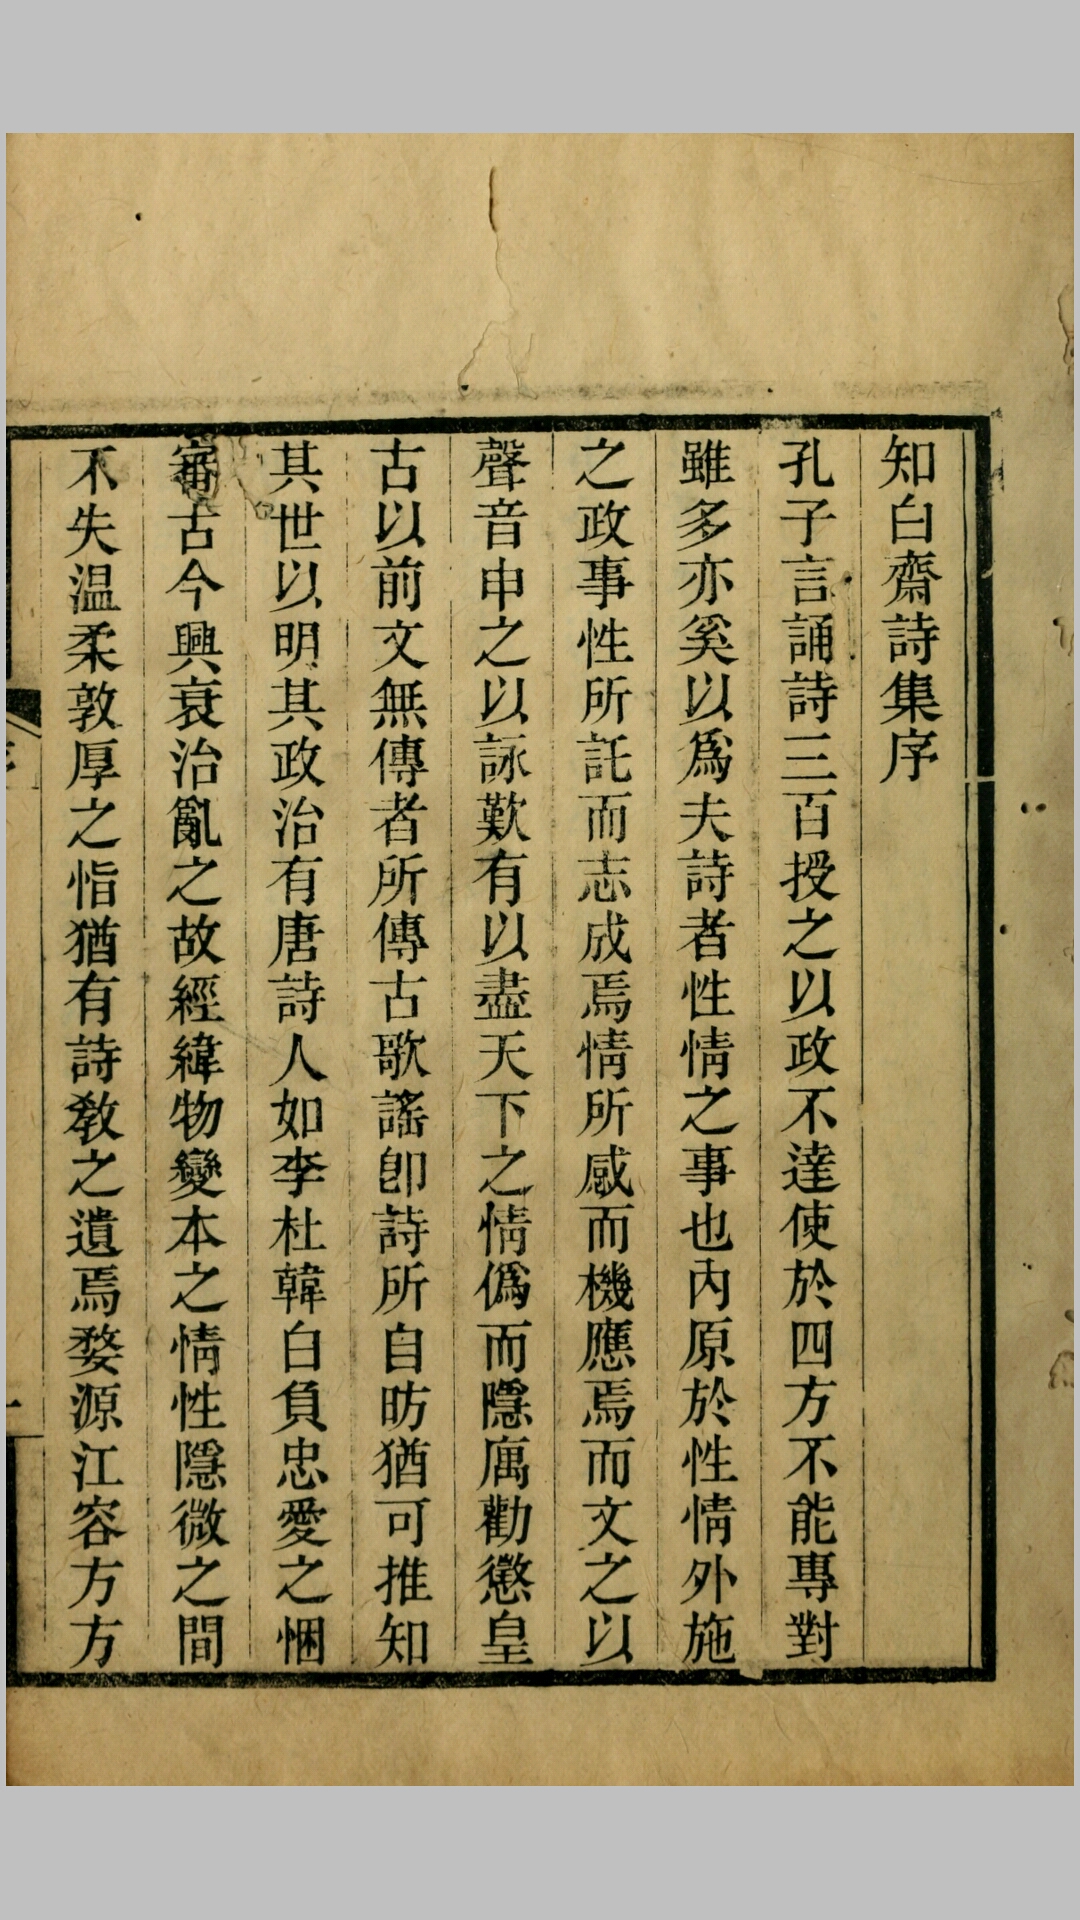 知白齋詩集序
孔子言誦詩三百授之以政不達使於四方不能專對
雖多亦奚以爲夫詩者性情之事也內原於性情外施
之政事性所託而志成焉情所感而機應焉而文之以
聲音申之以詠歎有以盡天下之情僞而隱厲勸懲皇
古以前文無傳者所傳古歌謠卽詩所自昉猶可推知
其世以明其政治有唐詩人如李杜韓白負忠愛之悃
審古今興衰治亂之故經緯物變本之情性隱微之間
不失温柔敦厚之恉猶有詩敎之遺焉婺源江容方方